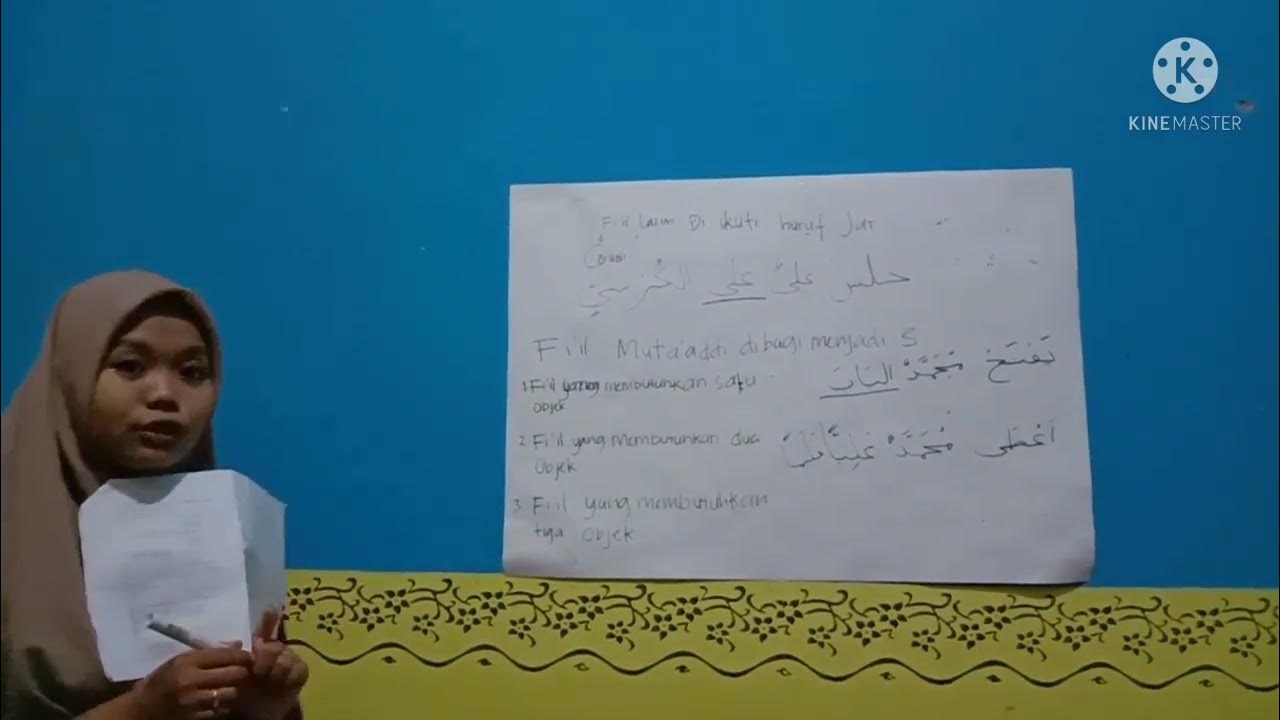 K
KINEMASTER
Fi'il lazim Di ikuti huruf Jar
Contoh
جلس علىٌّ على الكُرسيّ
Fi'il Muta'addi dibagi menjadi 3
1. Fi'il yang membutuhkan satu Objek
يَفْتَحُ مُحَمَّدٌ البَابَ
2. Fi'il yang membutuhkan dua Objek
اَعْطَى مُحَمَّدٌ
3. Fi'il yang membutuhkan tiga Objek